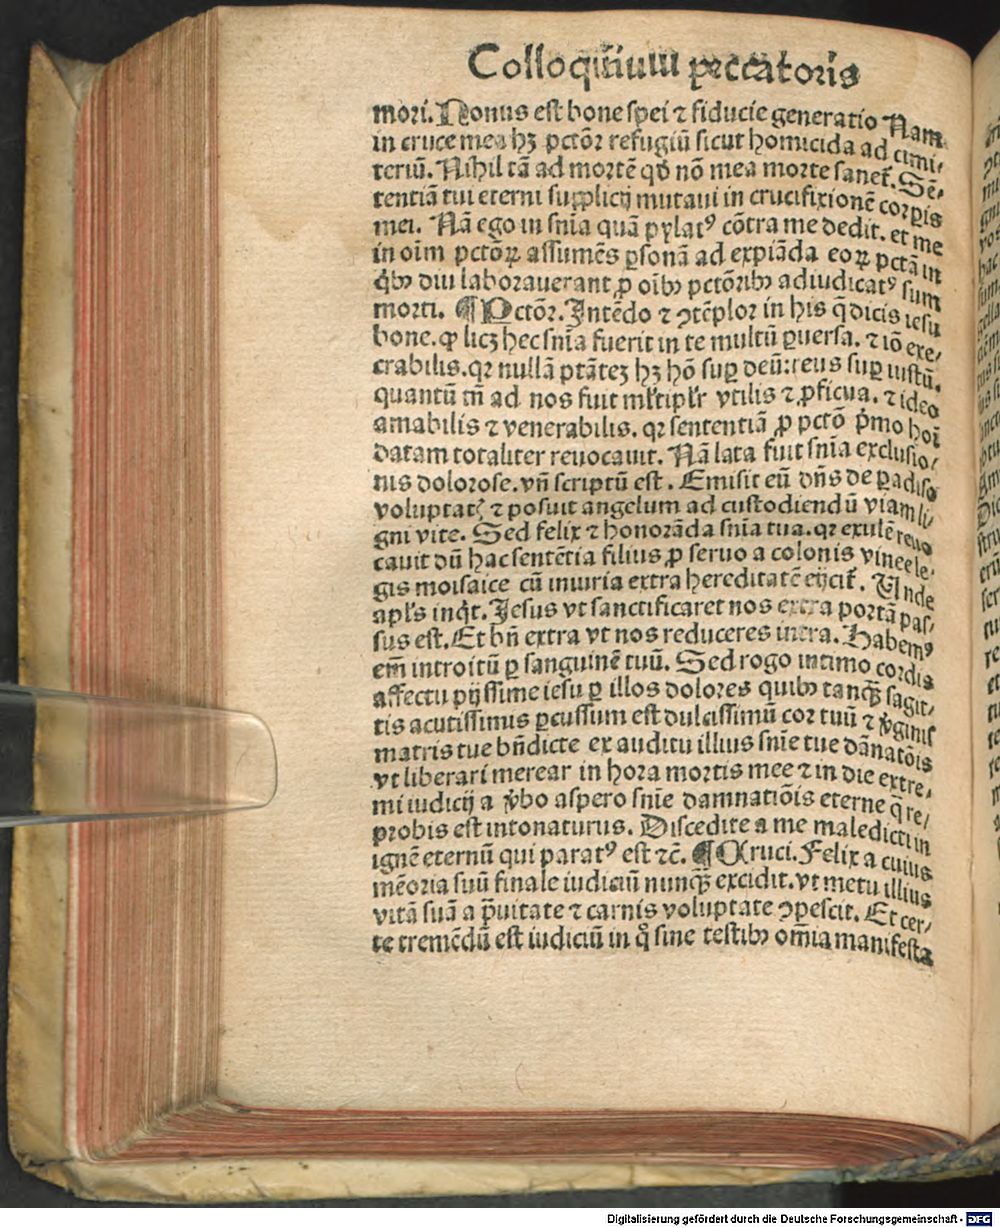 Colloquium peccatoris
mori. Nonus est bone spei ⁊ fiducie generatio Nam
in cruce mea hꝫ pctōꝛ refugiū sicut homicida ad cimi⸗
teriū. Nihil tā ad mortē qd̄ nō mea morte sanet᷑. Sē⸗
tentiā tui eterni supplicij mutaui in crucifixionē corpis
mei. Nā ego in sn̄ia quā pylatꝰ cōtra me dedit. et me
in oīm pctōꝝ assumēs ꝑsonā ad expiāda eoꝝ pctā in
q̇bꝫ diu laborauerant ꝓ oībꝫ pctōribꝫ adiudicatꝰ sum
morti. ¶ Pctōꝛ. Intēdo ⁊ ꝯtēplor in his q̄ dicis iesu
bone. ꝙ licꝫ hec sn̄ia fuerit in te multū ꝑuersa. ⁊ iō exe⸗
crabilis. qꝛ nullā ptātēꝫ hꝫ hō suꝑ deū: reus suꝑ iustū.
quantū tn̄ ad nos fuit ml̓tipl̓r vtilis ⁊ ꝓficua. ⁊ ideo
amabilis ⁊ venerabilis. qꝛ sententiā ꝓ pctō p̄mo hoī
datam totaliter reuocauit. Nā lata fuit sn̄ia exclusio⸗
nis dolorose. vn̄ scriptū est. Emisit eū dn̄s de ꝑadiso
voluptatꝭ ⁊ posuit angelum ad custodiendū viam li⸗
gni vite. Sed felix ⁊ honorāda sn̄ia tua. qꝛ exulē reuo
cauit dū hac sentētia filius ꝓ seruo a colonis vinee le⸗
gis moisaice cū iniuria extra hereditatē eijcit᷑. Unde
apl̓s inq̇t. Jesus vt sanctificaret nos extra portā pas⸗
sus est. Et bn̄ extra vt nos reduceres intra. Habemꝰ
em̄ introitū ꝑ sanguinē tuū. Sed rogo intimo cordis
affectu pijssime iesu ꝑ illos dolores quibꝫ tanqꝫ̄ sagit⸗
tis acutissimis ꝑcussum est dulcissimū cor tuū ⁊ v̓ginis
matris tue bn̄dicte ex auditu illius sn̄ie tue dānatōis
vt liberari merear in hora mortis mee ⁊ in die extre⸗
mi iudicij a v̓bo aspero sn̄ie damnatiōis eterne q̄ re⸗
probis est intonaturus. Discedite a me maledicti in
ignē eternū qui paratꝰ est ⁊cē. ¶ Cruci. Felix a cuius
mēoria suū finale iudiciū nunqꝫ̄ excidit. vt metu illius
vitā suā a p̄uitate ⁊ carnis voluptate ꝯpescit. Et cer⸗
te tremēdū est iudiciū in q̊ sine testibꝫ om̄ia manifesta
Digitalisierung gefördert durch die Deutsche Forschungsgemeinschaft - DFG